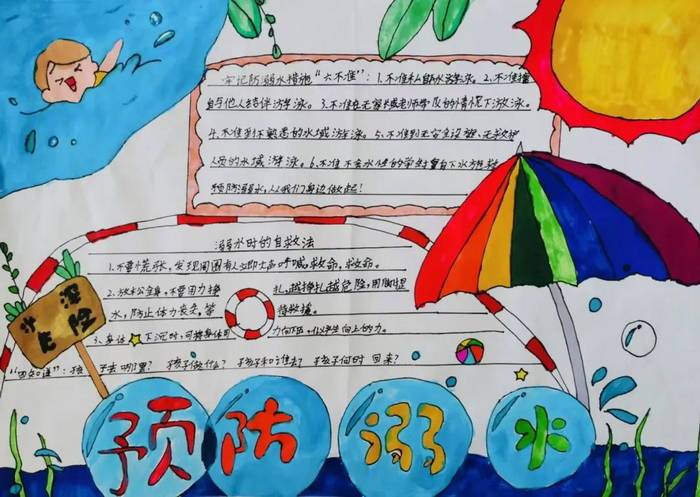 牢记防溺水措施“六不准”:1.不准私自下水游泳。2.不准擅
自与他人结伴游泳。3.不准在无家长或老师带队的情况下游泳。
4.不准到不熟悉的水域游泳。5.不准到无安全设施、无救护
人员的水域游泳。6.不准不会水性的学生擅自下水施救
预防溺水,从我们身边做起!
溺水时的自救法
1.不要慌张,发现周围有人立即大声呼喊救命,救命。
2.放松全身,不要用力挣扎,越挣扎越危险,用脚踢
水,防止体力丧失,等待救援。
3.身体下沉时,可将身体 力向下压,以 生向上的力。
“四知道”:孩子去哪里? 孩子做什么? 孩子和谁去? 孩子何时回来?
水深
危险
预防溺水